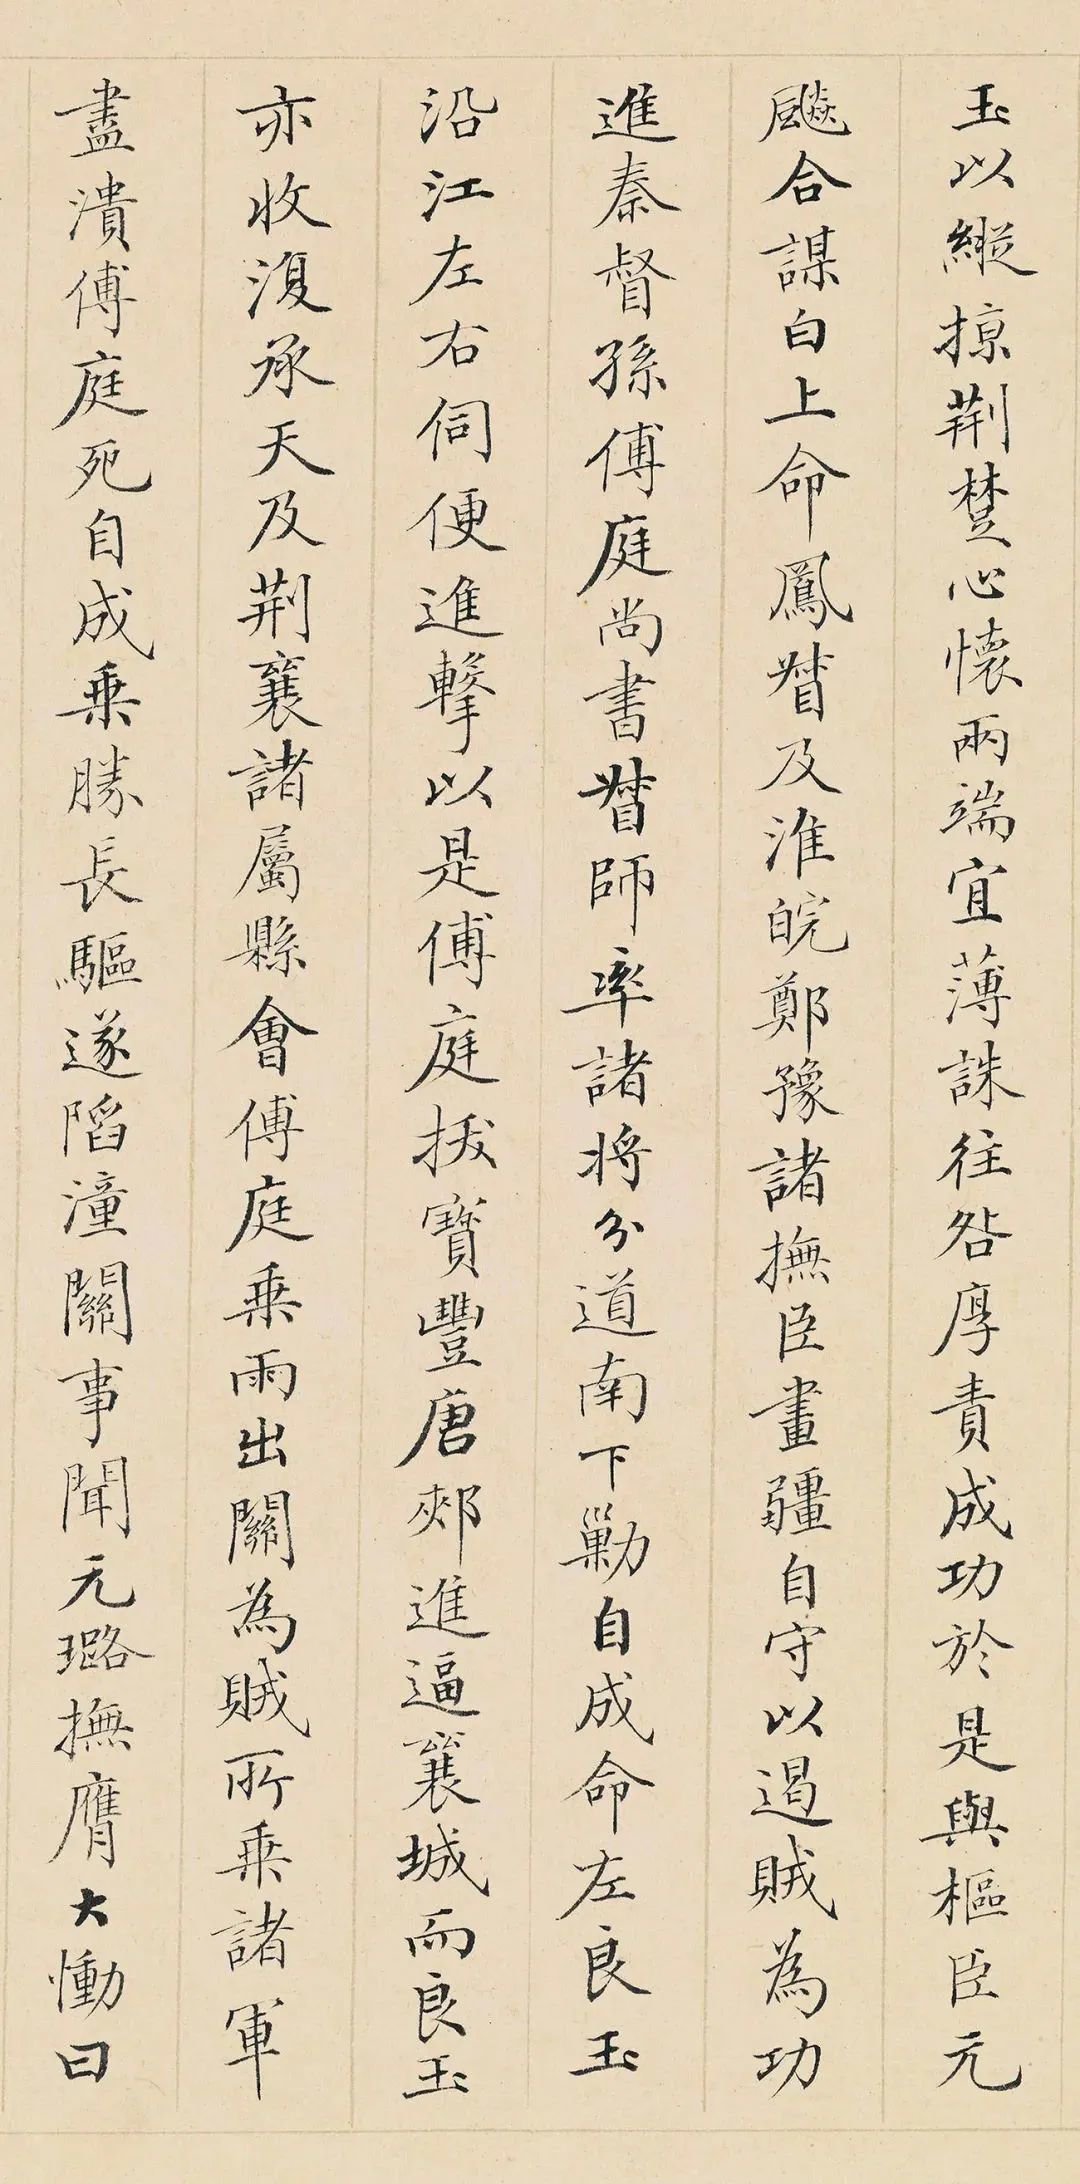 玉以縱掠荆楚心懷兩端宜薄誅往咎厚責成功於是與樞臣元
飈合謀白上命鳳督及淮皖鄭豫諸撫臣畫疆自守以遏賊為功
進秦督孫傅庭尚書督師率諸将分道南下勦自成命左良玉
沿江左右伺便進擊以是傅庭拔寶豐唐郟進逼襄城而良玉
亦收復承天及荆襄諸屬縣會傅庭乗雨出關為賊所乗諸軍
盡潰傅庭死自成乗勝長驅遂陷潼關事聞元璐撫膺大慟曰